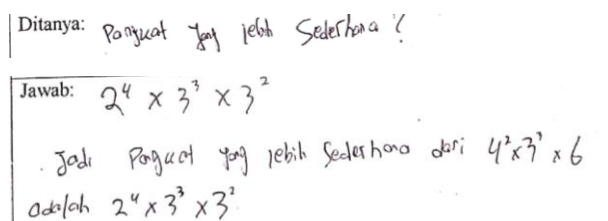 Ditanya: Pangkat yang lebih Sederhana?
Jawab: 2⁴ x 3³ x 3²
Jadi Pangkat yang lebih Sederhana dari 4² x 3³ x 6
adalah 2⁴ x 3³ x 3²